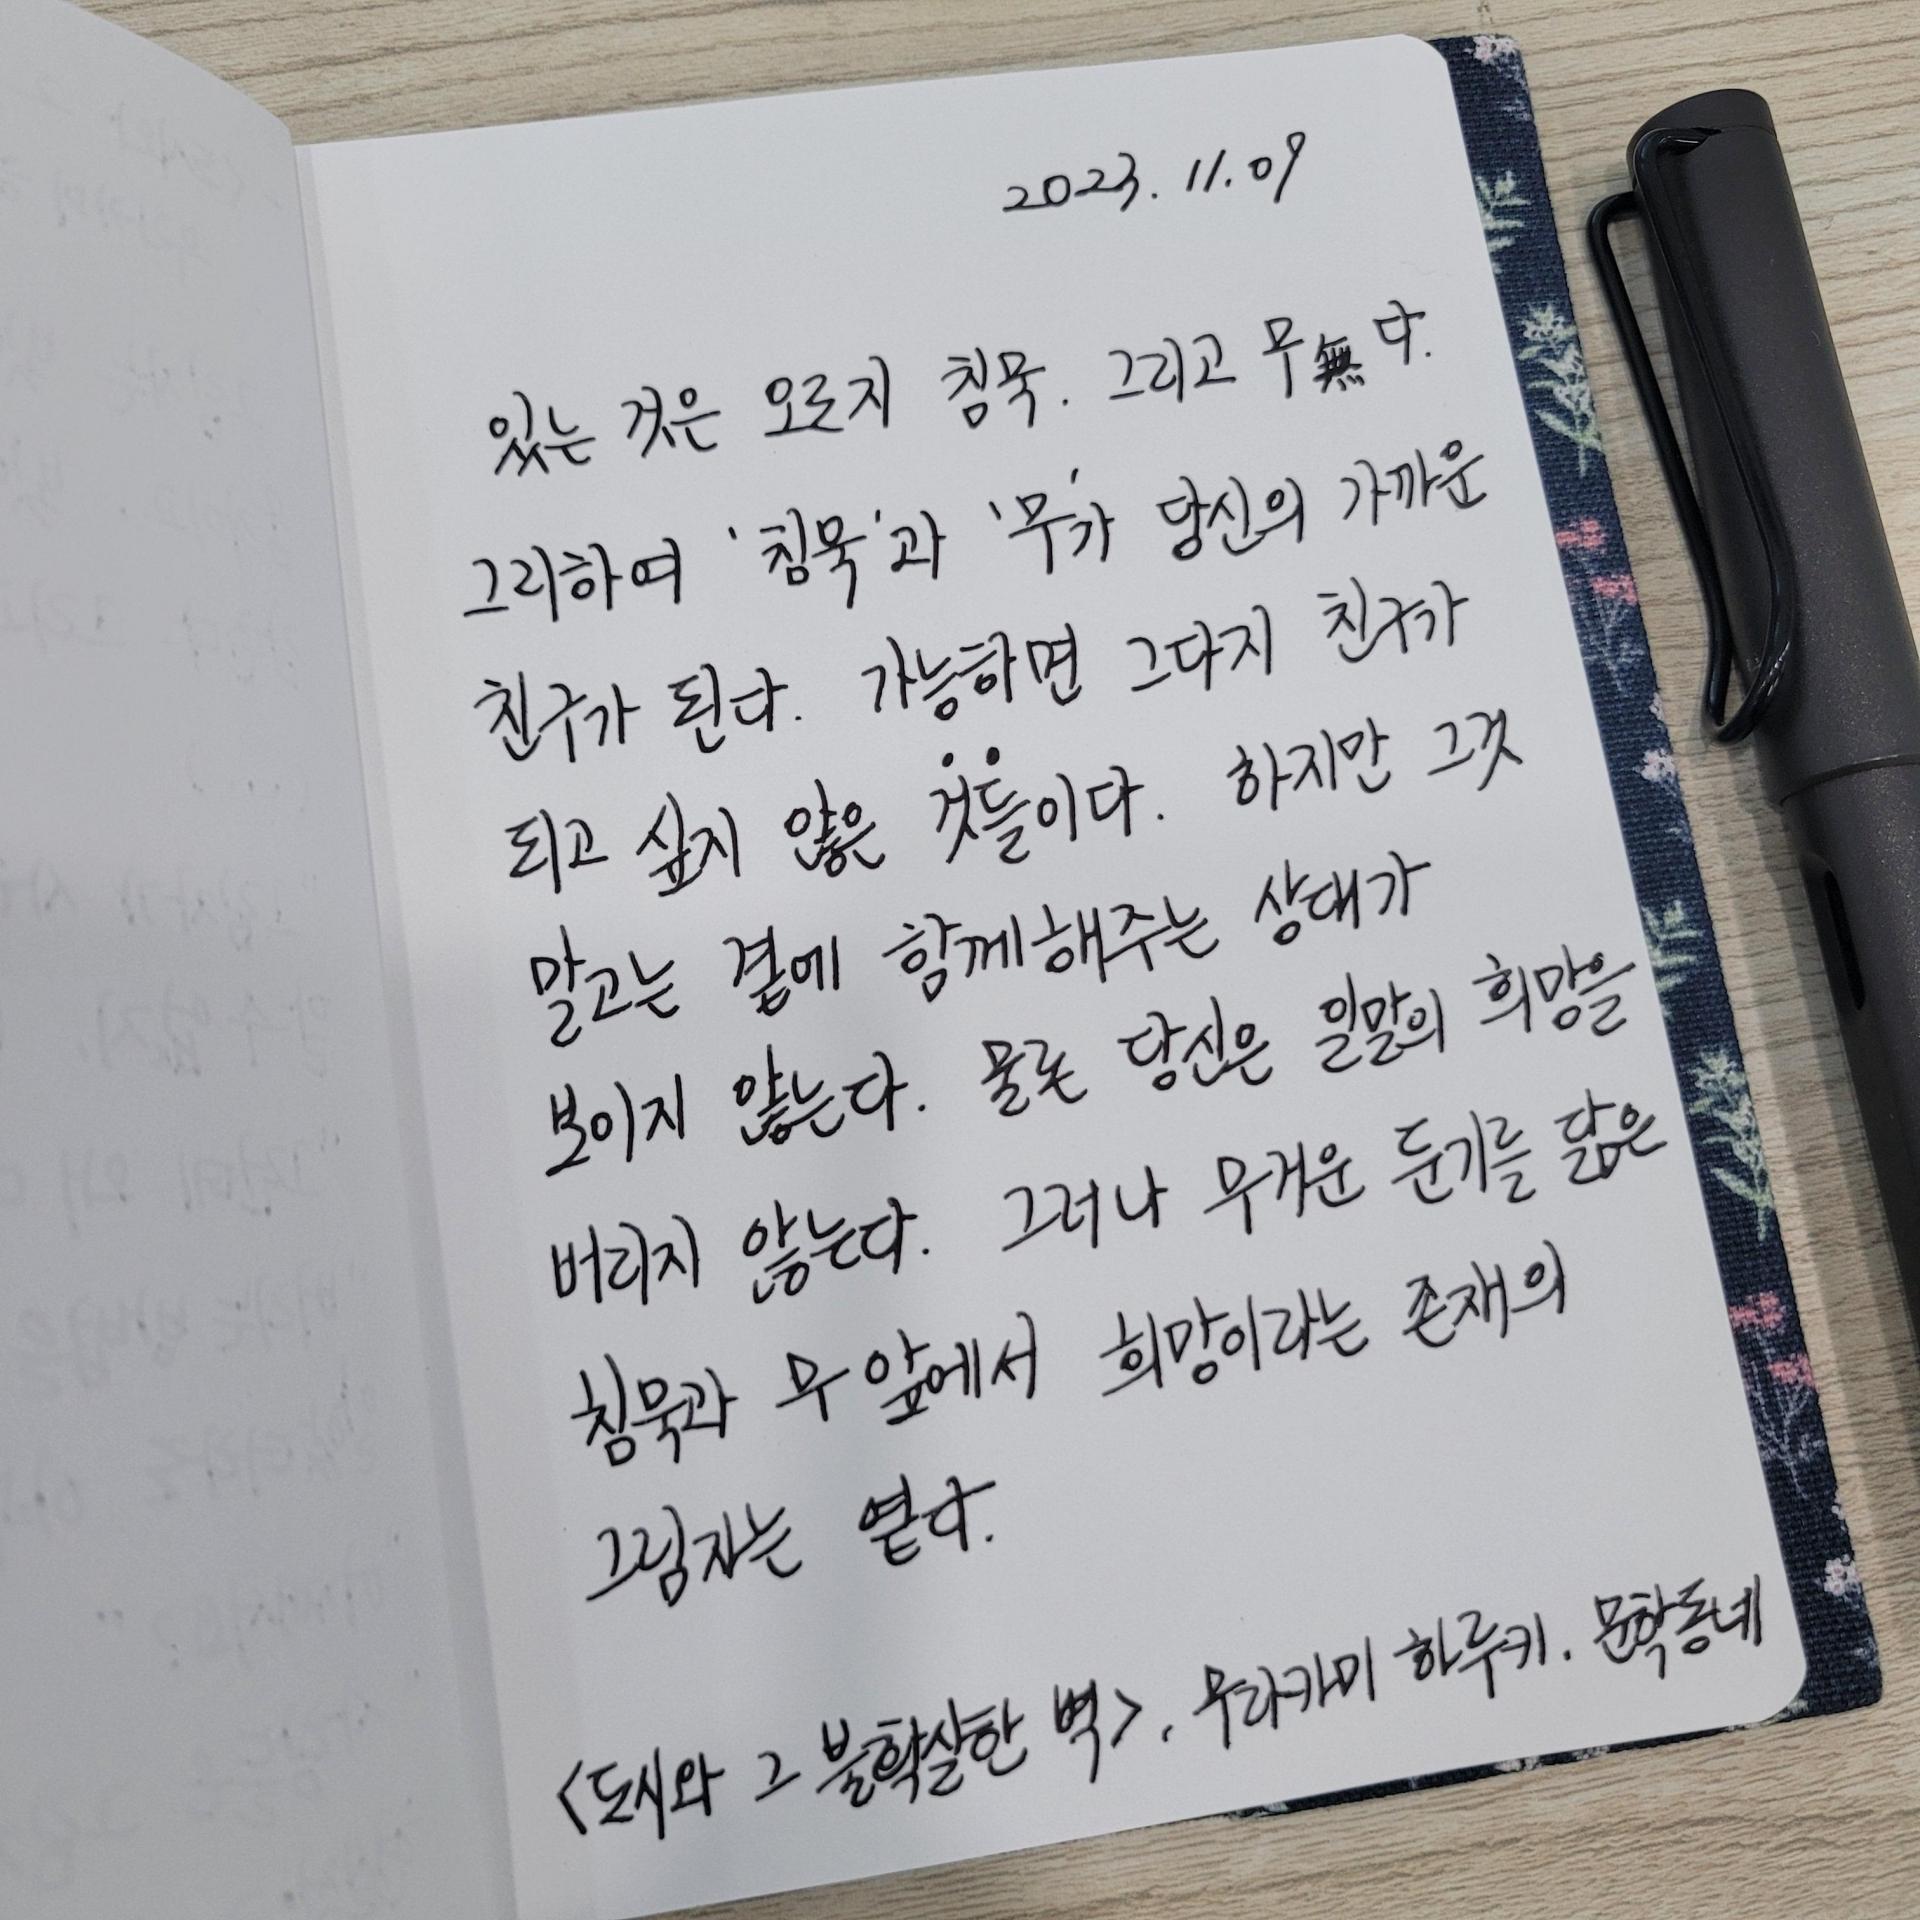 2023. 11. 09
있는 것은 오로지 침묵. 그리고 무無다.
그리하여 '침묵'과 '무'가 당신의 가까운
친구가 된다. 가능하면 그다지 친구가
되고 싶지 않은 것들이다. 하지만 그것
말고는 곁에 함께해주는 상대가
보이지 않는다. 물론 당신은 일말의 희망을
버리지 않는다. 그러나 무거운 둔기를 닮은
침묵과 무 앞에서 희망이라는 존재의
그림자는 옅다.
<도시와 그 불확실한 벽>, 무라카미 하루키. 문학동네